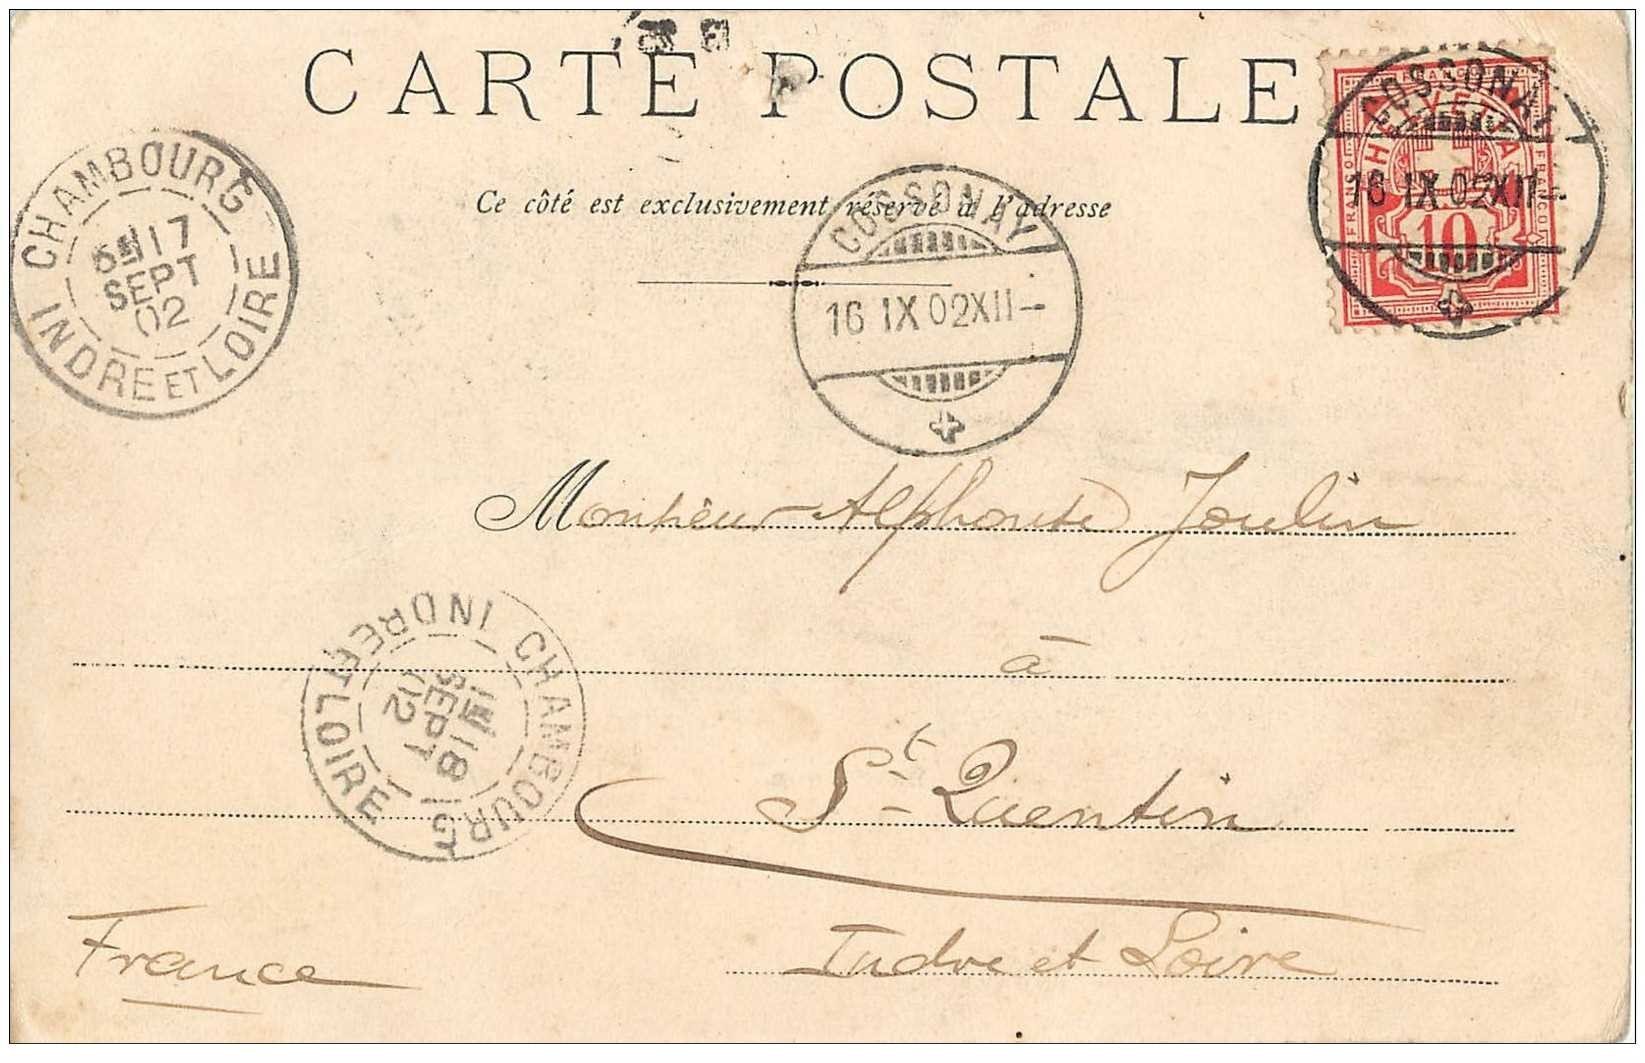 CARTE POSTALE
Ce côté est exclusivement réservé à l'adresse
HELVETIA
FRANCO
10
COSSONAY
16 IX 02 XII-
COSSONAY
16 IX 02 XII-
CHAMBOURG
17
SEPT
02
INDRE ET LOIRE
Monsieur Alphonse Joulin
à
St Quentin
Indre et Loire
France
CHAMBOURG
18
SEPT
02
INDRE ET LOIRE